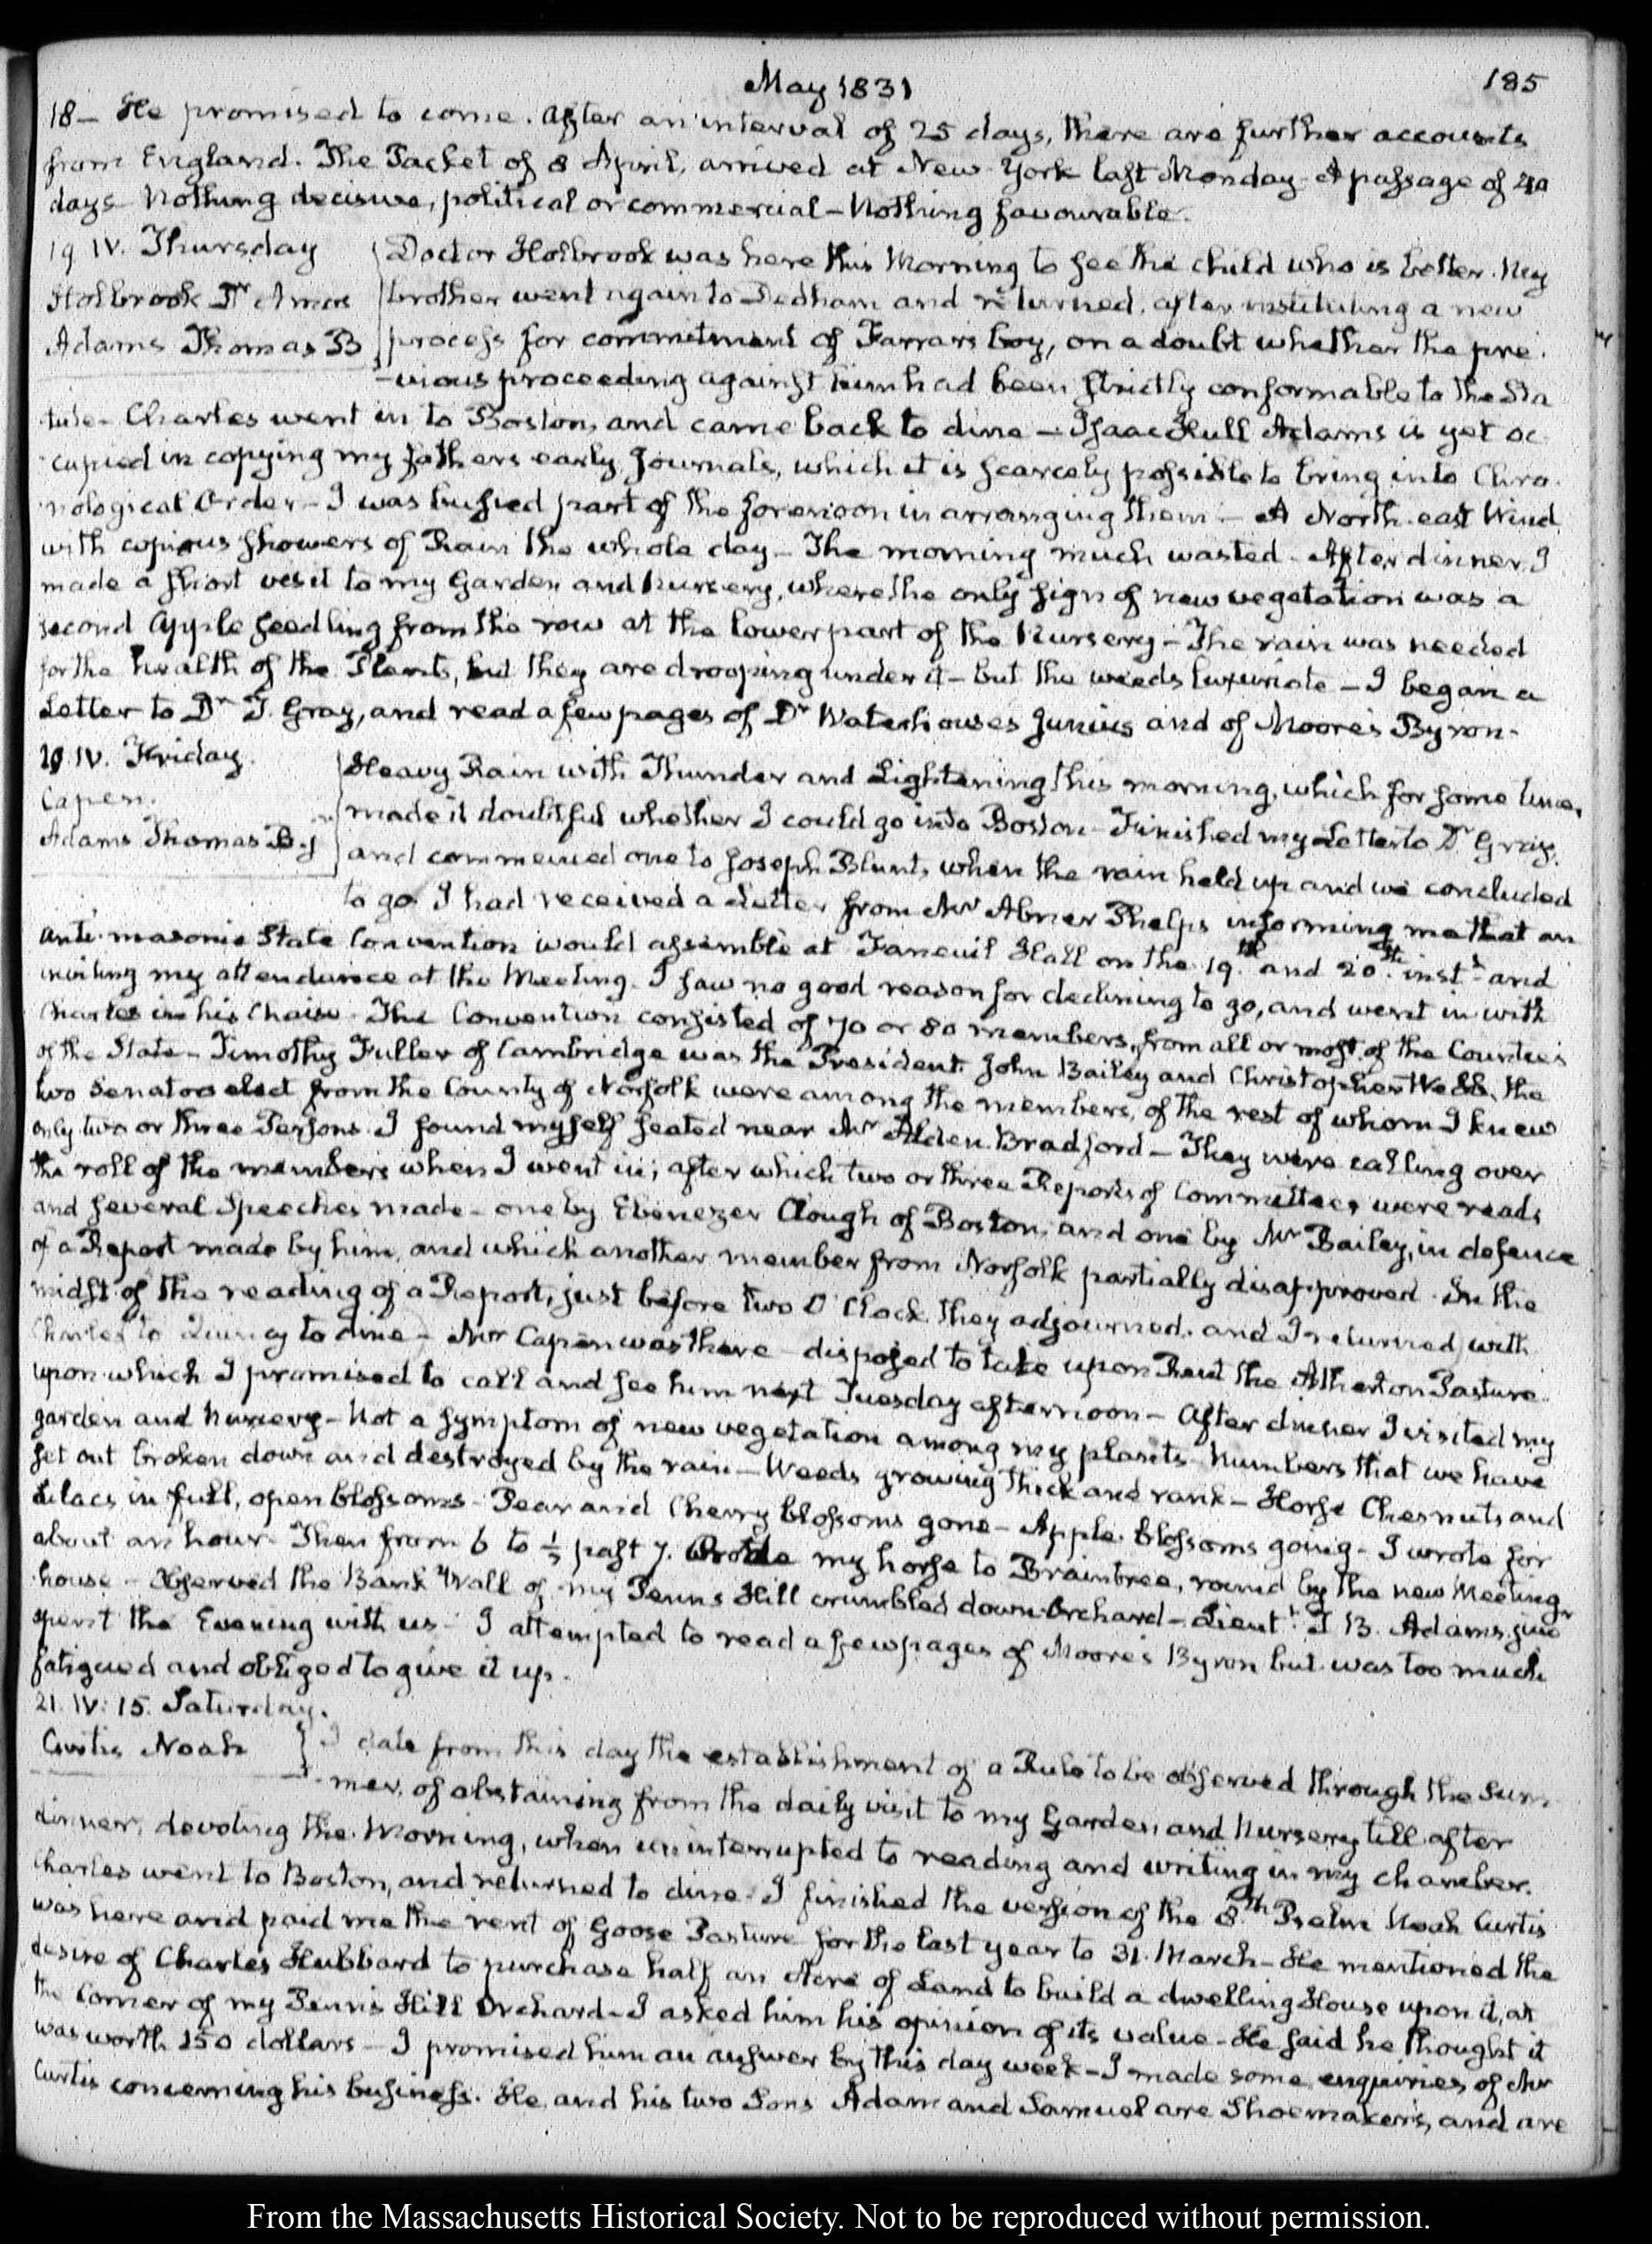 May 1831
185
18- He promised to come. After an interval of 25 days, there are further accounts
from England. The Packet of 8 April, arrived at New-York last Monday- A passage of 40
days- Nothing decisive, political or commercial- Nothing favourable.
19 IV. Thursday
Holbrook Dr Amos
Adams Thomas B
Doctor Holbrook was here this Morning to see the child who is better. My
brother went again to Dedham and returned, after instituting a new
process for commitment of Farrars boy, on a doubt whether the pre-
-vious proceeding against him had been strictly conformable to the Sta
tute- Charles went in to Boston, and came back to dine- Isaac Hull Adams is yet oc
cupied in copying my fathers early Journals, which it is scarcely possible to bring into Chro
nological Order- I was busied part of the forenoon in arranging them- A North-east Wind
with copious showers of Rain the whole day- The morning much wasted- After dinner, I
made a short visit to my Garden and Nursery, where the only sign of new vegetation was a
second Apple seedling from the row at the lower part of the Nursery- The rain was needed
for the health of the Plants, but they are drooping under it- but the weeds luxuriate- I began a
Letter to Dr T. Gray, and read a few pages of Dr Waterhouses Junius and of Moore's Byron-
20. IV. Friday.
Capen.
Adams Thomas B. j
Heavy Rain with Thunder and Lightening this morning, which for some time,
made it doubtful whether I could go into Boston- Finished my Letter to Dr Gray,
and commenced one to Joseph Blunt, when the rain held up and we concluded
to go. I had received a Letter from Mr Abner Phelps informing me that an
anti-masonic State Convention would assemble at Faneuil Hall on the 19th and 20th instt and
inviting my attendance at the Meeting. I saw no good reason for declining to go, and went in with
Charles in his Chaise- The Convention consisted of 70 or 80 members, from all or most of the Counties
of the State- Timothy Fuller of Cambridge was the President. John Bailey and Christopher Webb, the
two Senators elect from the County of Norfolk were among the members, of the rest of whom I knew
only two or three Persons. I found myself seated near Mr Alden Bradford- They were calling over
the roll of the members when I went in; after which two or three Reports of Committees were read,
and several Speeches made- one by Ebenezer Clough of Boston, and one by Mr Bailey, in defence
of a Report made by him, and which another member from Norfolk partially disapproved. In the
midst of the reading of a Report, just before two O'Clock they adjourned, and I returned with
Charles to Quincy to dine- Mr Capen was there- disposed to take upon Rent the Atherton Pasture
upon which I promised to call and see him next Tuesday afternoon- After dinner I visited my
garden and Nursery- Not a symptom of new vegetation among my plants- Numbers that we have
set out broken down and destroyed by the rain- Weeds growing thick and rank- Horse Chesnuts and
Lilacs in full, open blossoms- Pear and Cherry blossoms gone- Apple blossoms going- I wrote for
about an hour- Then from 6 to ½ past 7. Rode my horse to Braintree, round by the new Meeting
house- Observed the Bank Wall of my Penns Hill crumbled down Orchard- Lieutt T B. Adams junr
spent the Evening with us- I attempted to read a few pages of Moore's Byron but was too much
fatigued and obliged to give it up.
21. IV: 15. Saturday.
Curtis Noah
I date from this day the establishment of a Rule to be observed through the Sum-
mer, of abstaining from the daily visit to my Garden and Nursery till after
dinner, devoting the Morning, when uninterrupted to reading and writing in my chamber.
Charles went to Boston, and returned to dine- I finished the version of the 8th Psalm Noah Curtis
was here and paid me the rent of Goose Pasture for the last year to 31. March- He mentioned the
desire of Charles Hubbard to purchase half an Acre of Land to build a dwelling House upon it, at
the Corner of my Penn's Hill Orchard- I asked him his opinion of its value- He said he thought it
was worth 150 dollars- I promised him an answer by this day week- I made some enquiries of Mr
Curtis concerning his business. He, and his two Sons Adam and Samuel are Shoemakers, and are
From the Massachusetts Historical Society. Not to be reproduced without permission.